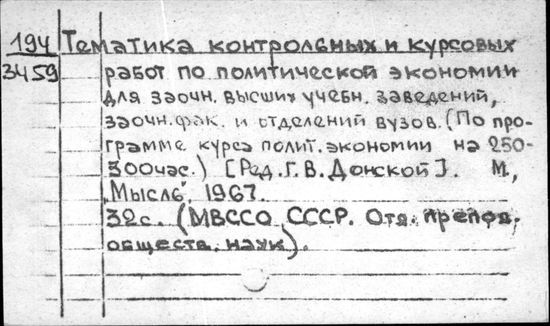 194 Тематика контрольных и курсовых
3459 работ по политической экономии
для заочн. высших учебн. заведений,
заочн. фак. и отделений вузов. (По про-
грамме курса полит. экономии на 250-
300 час.) [Ред. Г. В. Донской]. М.,
„Мысль", 1967.
32 с. (МВССО СССР. Отд. препод.
обществ. наук).